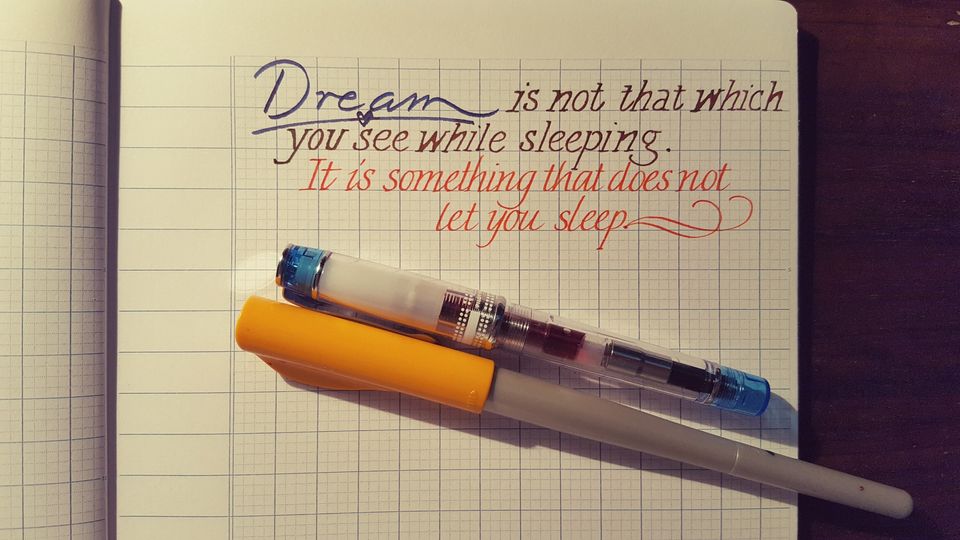 Dream is not that which
you see while sleeping.
It is something that does not
let you sleep.